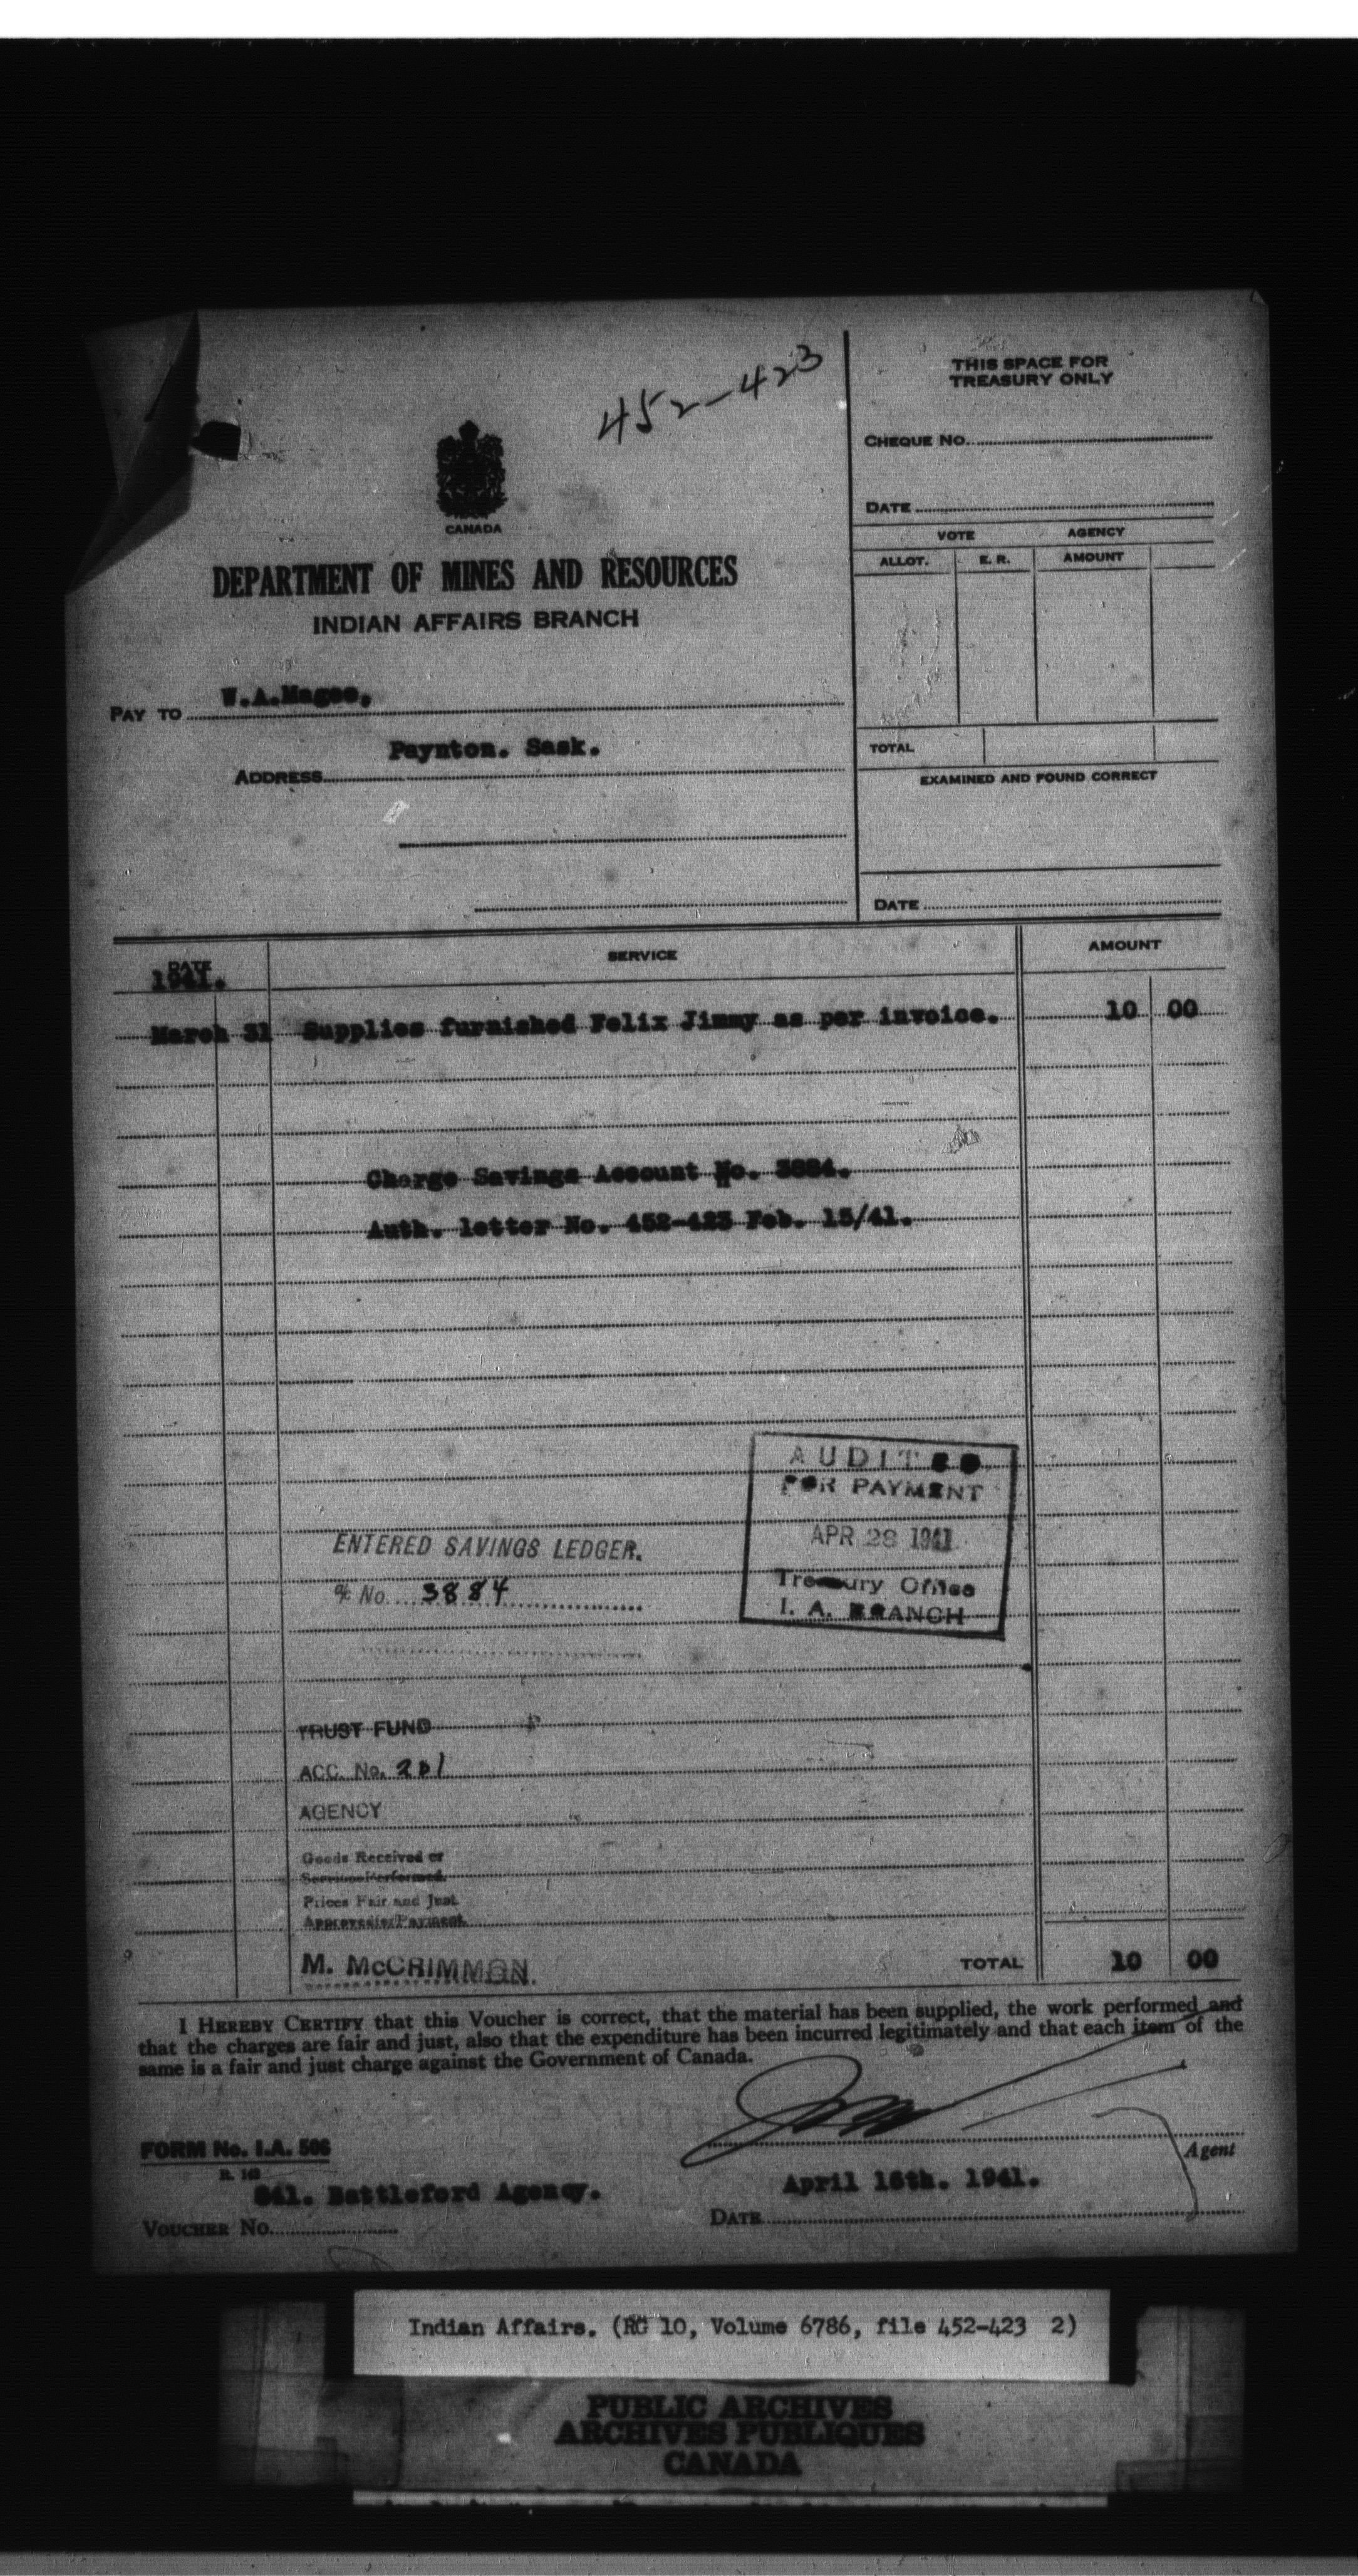 452-423
THIS SPACE FOR
TREASURY ONLY
CHEQUE NO.
DATE
VOTE AGENCY
ALLOT. E. R. AMOUNT
TOTAL
EXAMINED AND FOUND CORRECT
DATE
CANADA
DEPARTMENT OF MINES AND RESOURCES
INDIAN AFFAIRS BRANCH
PAY TO W.A.Magee,
Paynton. Sask.
ADDRESS
DATE SERVICE AMOUNT
1941.
March 31 Supplies furnished Felix Jimmy as per invoice. 10 00
Charge Savings Account No. 3884.
Auth. letter No. 452-423 Feb. 15/41.
AUDITED
FOR PAYMENT
APR 28 1941
Treasury Office
I. A. BRANCH
ENTERED SAVINGS LEDGER.
a/c No. 3884
TRUST FUND
ACC. No. 201
AGENCY
Goods Received or
Services Performed.
Prices Fair and Just
Approved for Payment.
M. McCRIMMON.
TOTAL 10 00
I HEREBY CERTIFY that this Voucher is correct, that the material has been supplied, the work performed and
that the charges are fair and just, also that the expenditure has been incurred legitimately and that each item of the
same is a fair and just charge against the Government of Canada.
Agent
FORM No. I.A. 506
R. 163
841. Battleford Agency.
VOUCHER No.
April 16th. 1941.
DATE
Indian Affairs. (RG 10, Volume 6786, file 452-423 2)
PUBLIC ARCHIVES
ARCHIVES PUBLIQUES
CANADA